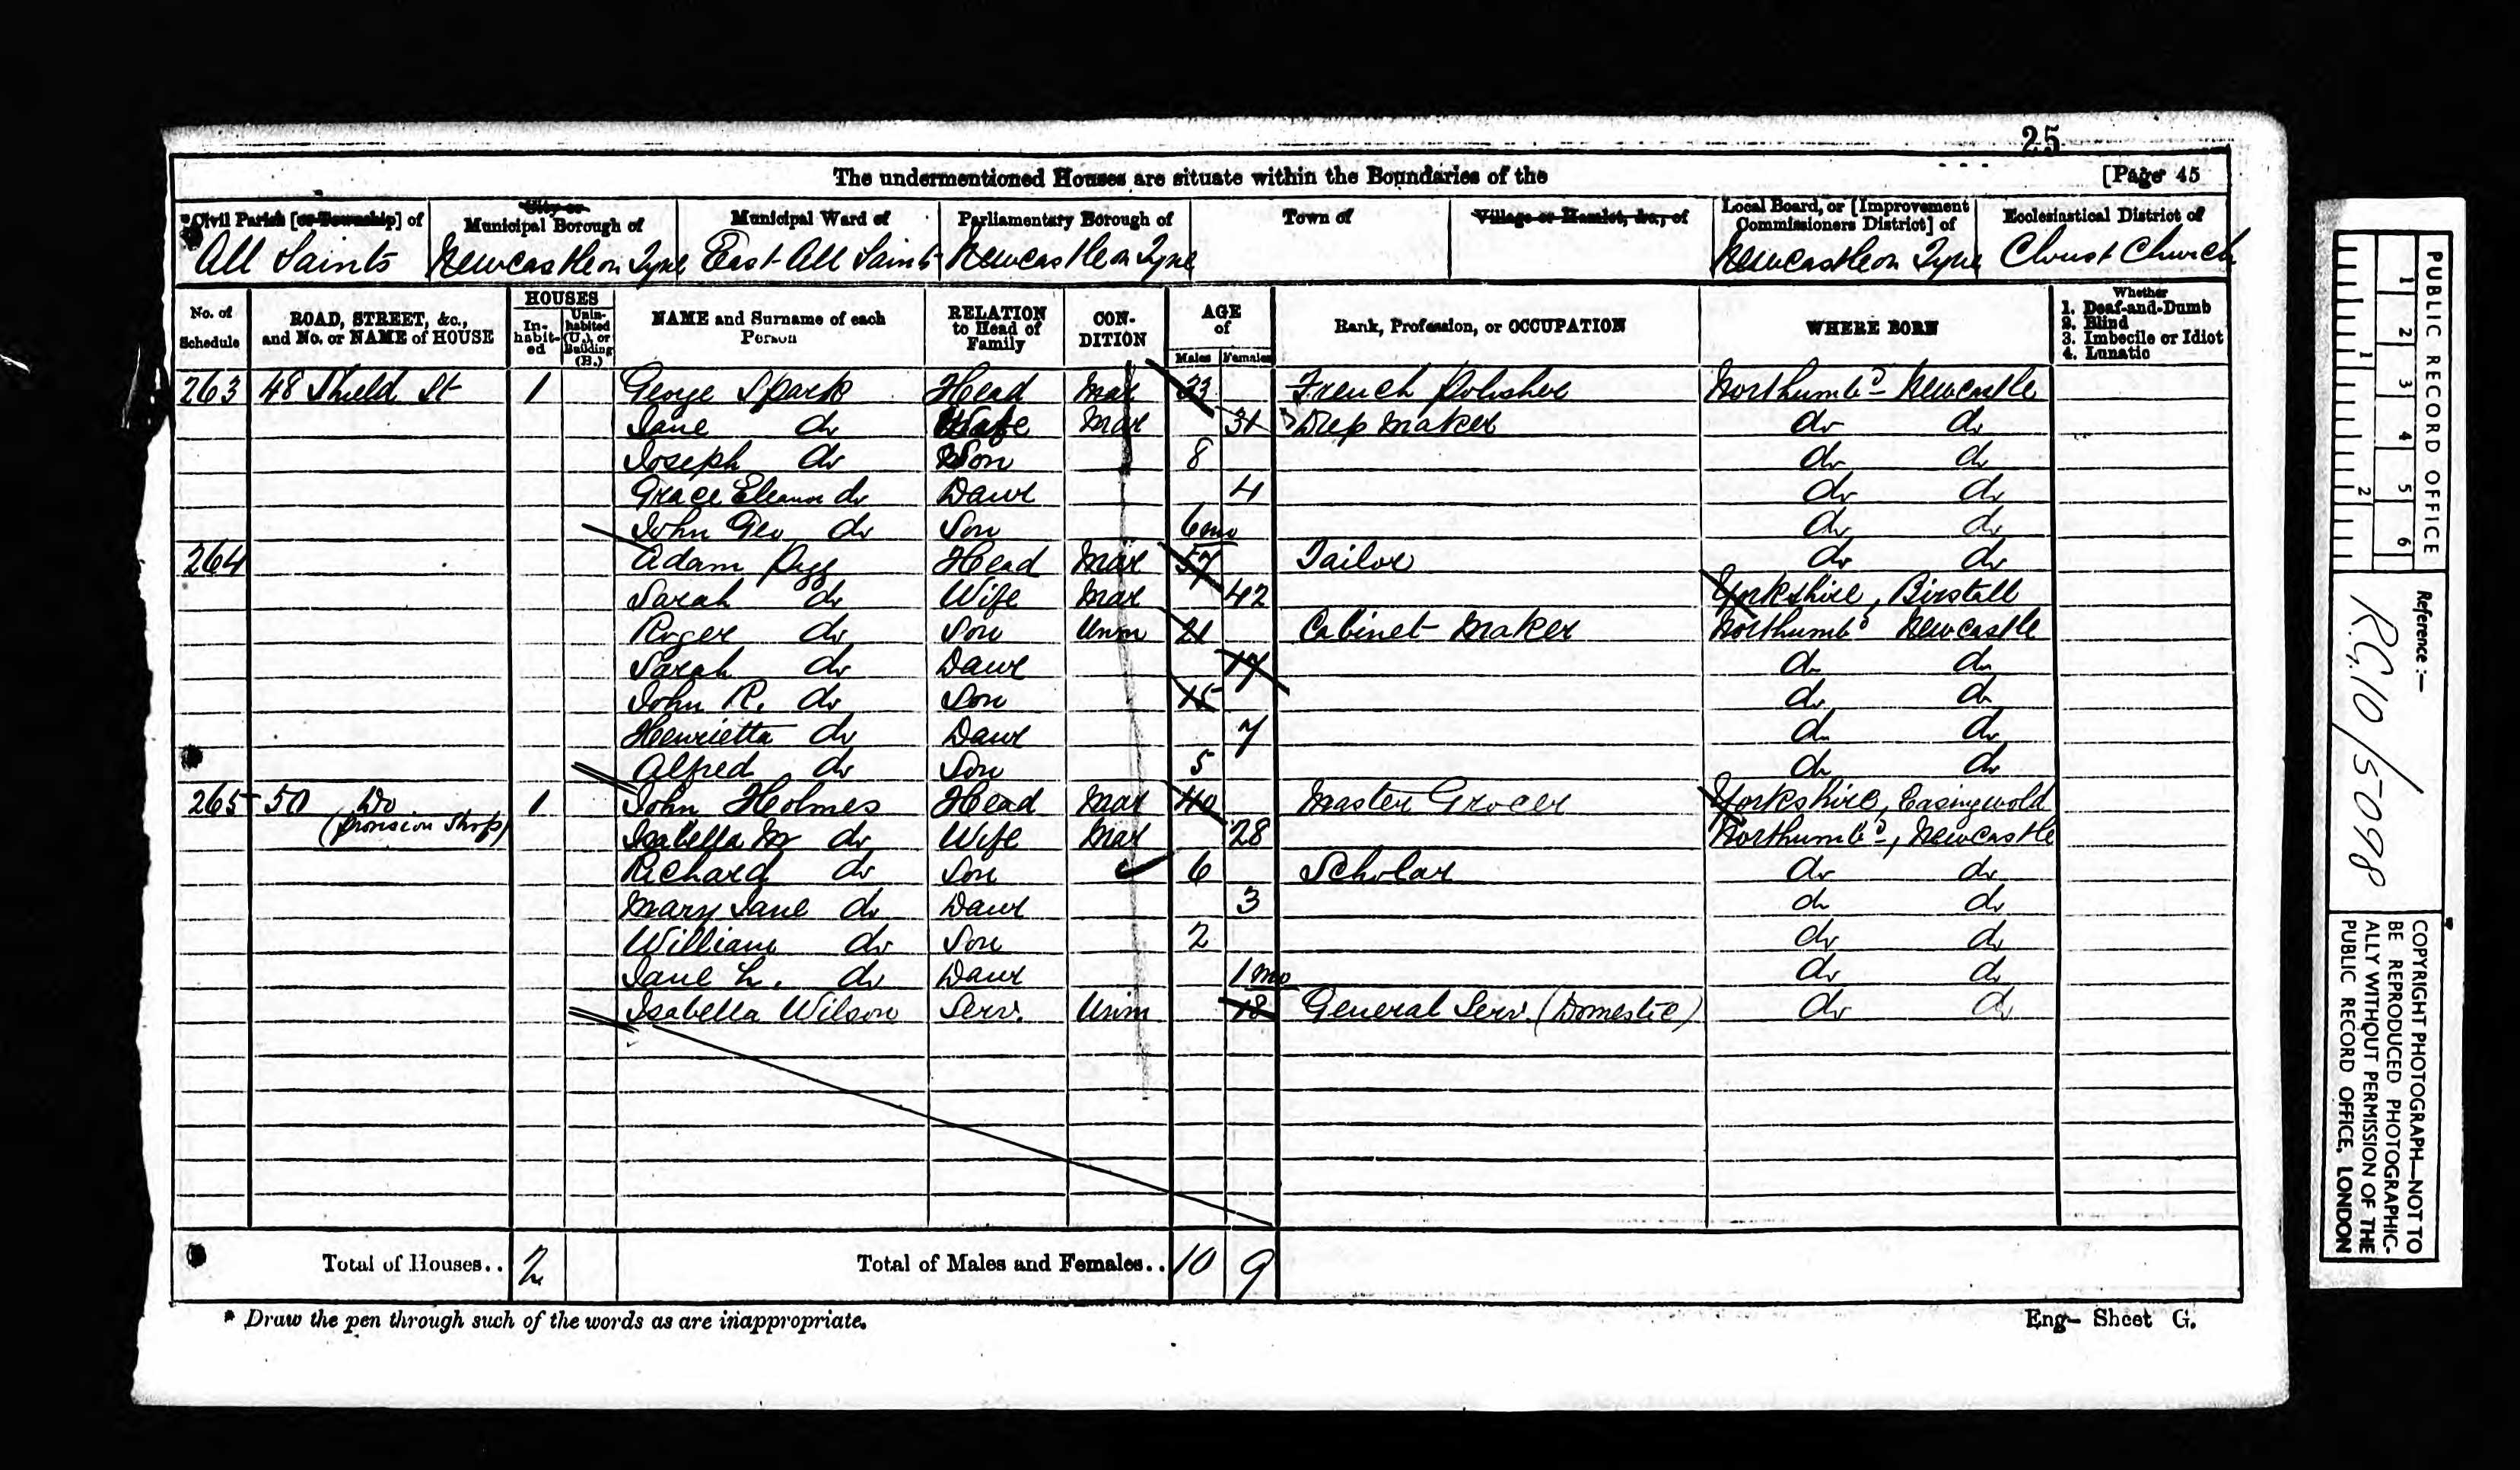 25
The undermentioned Houses are situate within the Boundaries of the [Page 45
Civil Parish [or Township] of City or Municipal Borough of Municipal Ward of Parliamentary Borough of Town of Village or Hamlet, &c., of Local Board, or [Improvement Commissioners District] of Ecclesiastical District of
All Saints Newcastle on Tyne East All Saints Newcastle on Tyne Newcastle on Tyne Christ Church
No. of Schedule ROAD, STREET, &c., and No. or NAME of HOUSE HOUSES Inhabited Uninhabited (U.), or Building (B.) NAME and Surname of each Person RELATION to Head of Family CONDITION AGE of Males Females Rank, Profession, or OCCUPATION WHERE BORN Whether 1. Deaf-and-Dumb 2. Blind 3. Imbecile or Idiot 4. Lunatic
263 48 Shield St 1 George Spark Head Mar 33 French Polisher Northumbd Newcastle
Jane do Wife Mar 31 Drep Maker do do
Joseph do Son 8 do do
Grace Eleanor do Daur 4 do do
John Geo do Son 6mo do do
264 Adam Pigg Head Mar 57 Tailor do do
Sarah do Wife Mar 42 Yorkshire, Birstall
Roger do Son Unm 21 Cabinet Maker Northumbd Newcastle
Sarah do Daur 17 do do
John R. do Son 15 do do
Henrietta do Daur 7 do do
Alfred do Son 5 do do
265 50 Do 1 John Holmes Head Mar 40 Master Grocer Yorkshire, Easingwold
(Provision Shop) Isabella M do Wife Mar 28 Northumbd, Newcastle
Richard do Son 6 Scholar do do
Mary Jane do Daur 3 do do
William do Son 2 do do
Jane L. do Daur 1mo do do
Isabella Wilson Serv. Unm 18 General Serv. (Domestic) do do
Total of Houses.. 2 Total of Males and Females.. 10 9
* Draw the pen through such of the words as are inappropriate.
Eng— Sheet G.
PUBLIC RECORD OFFICE
1 2 3 4 5 6
1 2
Reference:—
R.G. 10/5098
COPYRIGHT PHOTOGRAPH—NOT TO
BE REPRODUCED PHOTOGRAPHIC-
ALLY WITHOUT PERMISSION OF THE
PUBLIC RECORD OFFICE, LONDON